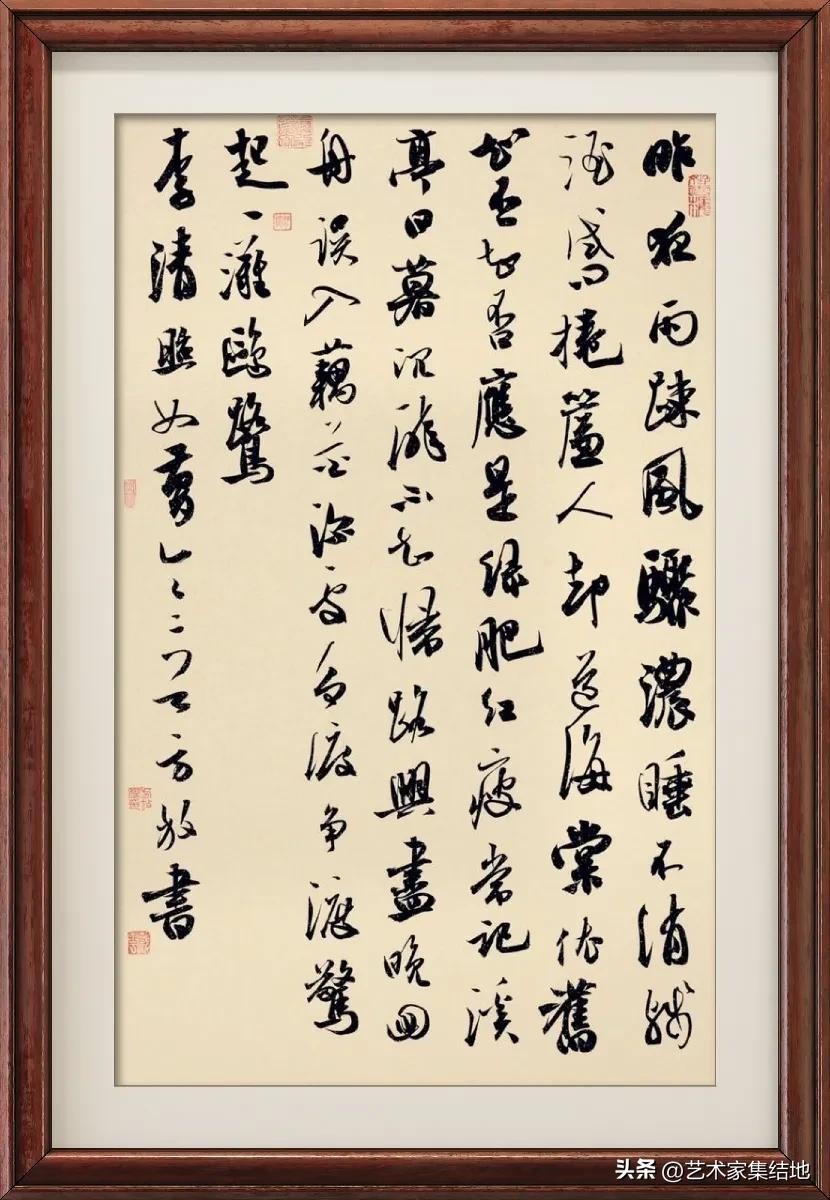 昨夜雨疎風驟濃睡不消殘
酒試問捲簾人却道海棠依舊
知否知否應是綠肥紅瘦常記溪
亭日暮沉醉不知歸路興盡晚回
舟誤入藕花深處争渡争渡驚
起一灘鷗鷺
李清照如夢令二方放書
头条 @艺术家集结地